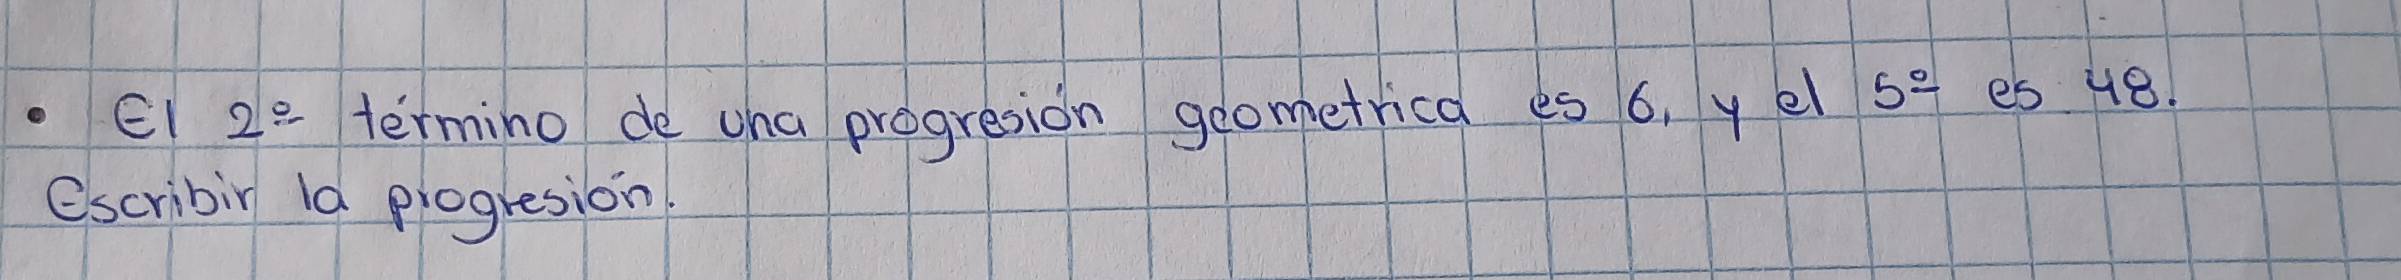 • El 2º término de una progresión geometrica es 6, y el 5º es 48.
Escribir la progresión.